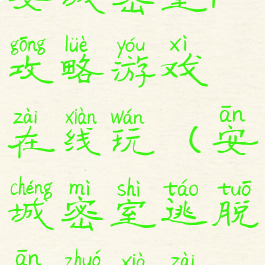 gōng lüè yóu xì
攻略游戏
zài xiàn wán ān
在线玩（安
chéng mì shì táo tuō
城密室逃脱
ān zhuó xià zài